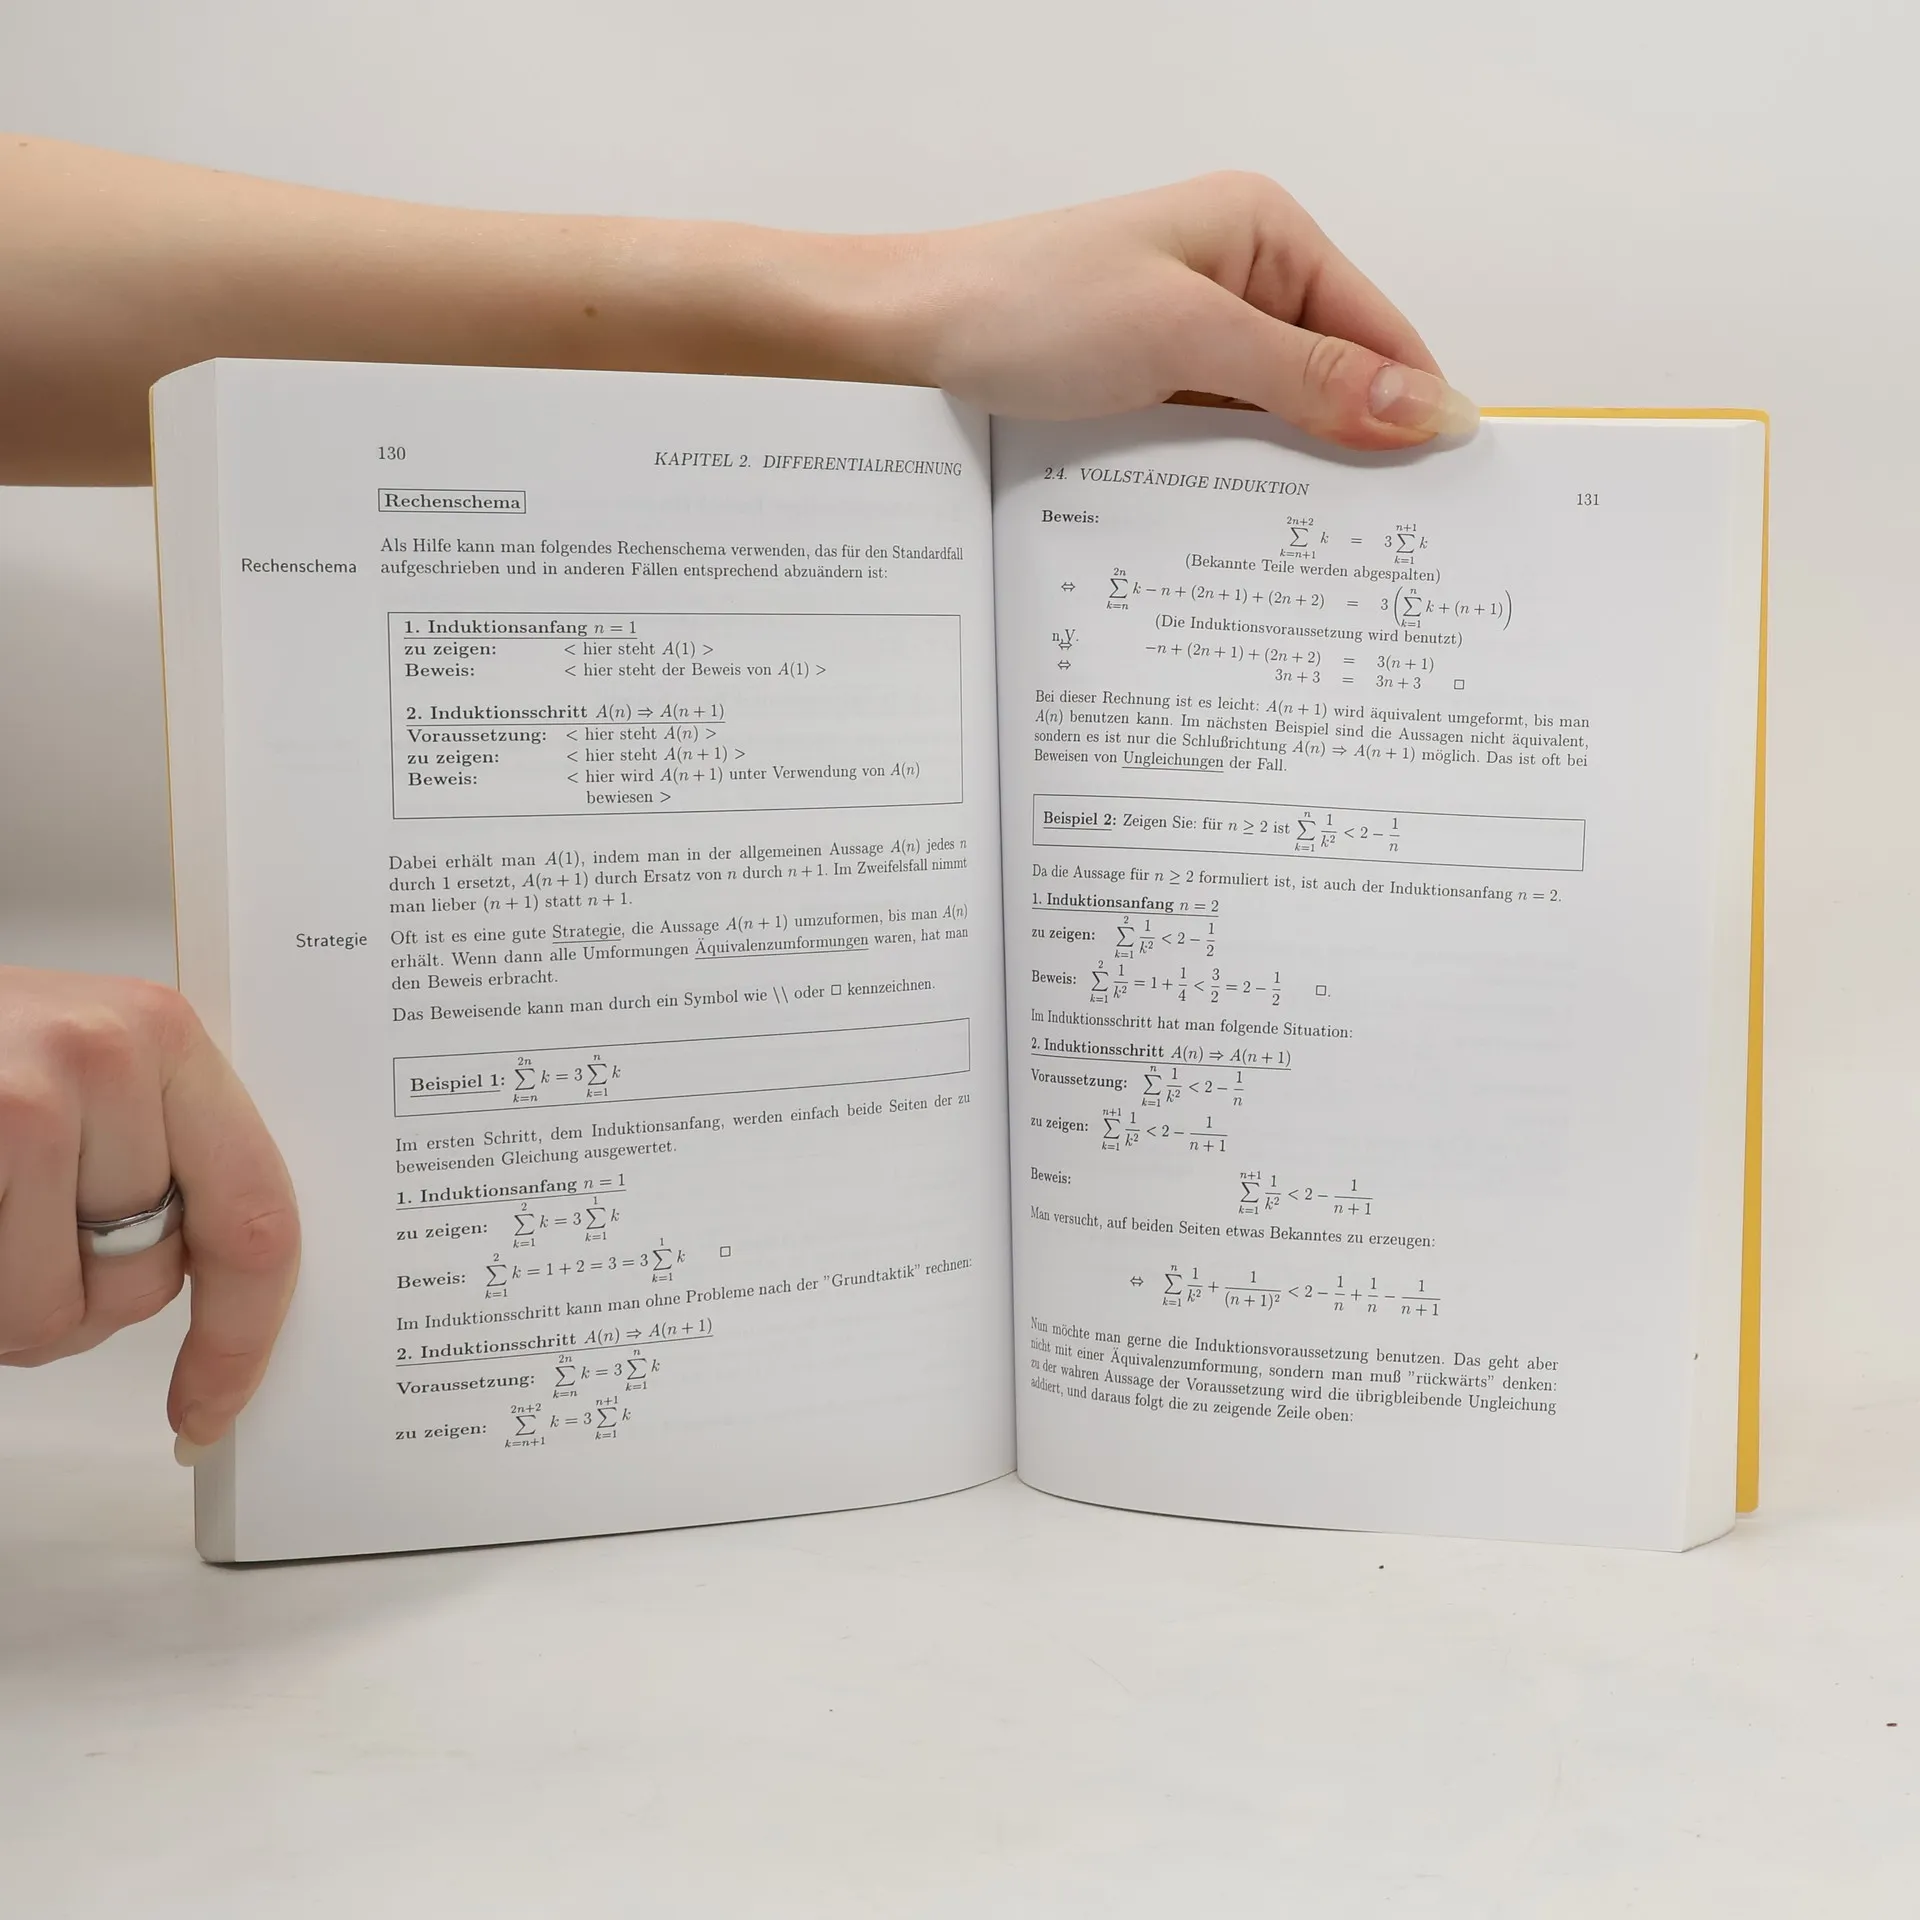 130
KAPITEL 2. DIFFERENTIALRECHNUNG
Rechenschema
Rechenschema
Als Hilfe kann man folgendes Rechenschema verwenden, das für den Standardfall
aufgeschrieben und in anderen Fällen entsprechend abzuändern ist:
1. Induktionsanfang n = 1
zu zeigen: < hier steht A(1) >
Beweis: < hier steht der Beweis von A(1) >
2. Induktionsschritt A(n) ⇒ A(n + 1)
Voraussetzung: < hier steht A(n) >
zu zeigen: < hier steht A(n + 1) >
Beweis: < hier wird A(n + 1) unter Verwendung von A(n)
bewiesen >
Dabei erhält man A(1), indem man in der allgemeinen Aussage A(n) jedes n
durch 1 ersetzt, A(n + 1) durch Ersatz von n durch n + 1. Im Zweifelsfall nimmt
man lieber (n + 1) statt n + 1.
Strategie
Oft ist es eine gute Strategie, die Aussage A(n + 1) umzuformen, bis man A(n)
erhält. Wenn dann alle Umformungen Äquivalenzumformungen waren, hat man
den Beweis erbracht.
Das Beweisende kann man durch ein Symbol wie \\ oder □ kennzeichnen.
Beispiel 1: ∑_{k=n}^{2n} k = 3 ∑_{k=1}^{n} k
Im ersten Schritt, dem Induktionsanfang, werden einfach beide Seiten der zu
beweisenden Gleichung ausgewertet.
1. Induktionsanfang n = 1
zu zeigen: ∑_{k=1}^{2} k = 3 ∑_{k=1}^{1} k
Beweis: ∑_{k=1}^{2} k = 1 + 2 = 3 = 3 ∑_{k=1}^{1} k □
Im Induktionsschritt kann man ohne Probleme nach der "Grundtaktik" rechnen:
2. Induktionsschritt A(n) ⇒ A(n + 1)
Voraussetzung: ∑_{k=n}^{2n} k = 3 ∑_{k=1}^{n} k
zu zeigen: ∑_{k=n+1}^{2n+2} k = 3 ∑_{k=1}^{n+1} k
2.4. VOLLSTÄNDIGE INDUKTION
131
Beweis: ∑_{k=n+1}^{2n+2} k = 3 ∑_{k=1}^{n+1} k
(Bekannte Teile werden abgespalten)
⇔ ∑_{k=n}^{2n} k − n + (2n + 1) + (2n + 2) = 3 (∑_{k=1}^{n} k + (n + 1))
(Die Induktionsvoraussetzung wird benutzt)
n.V. ⇔ −n + (2n + 1) + (2n + 2) = 3(n + 1)
⇔ 3n + 3 = 3n + 3 □
Bei dieser Rechnung ist es leicht: A(n + 1) wird äquivalent umgeformt, bis man
A(n) benutzen kann. Im nächsten Beispiel sind die Aussagen nicht äquivalent,
sondern es ist nur die Schlußrichtung A(n) ⇒ A(n + 1) möglich. Das ist oft bei
Beweisen von Ungleichungen der Fall.
Beispiel 2: Zeigen Sie: für n ≥ 2 ist ∑_{k=1}^{n} 1/k² < 2 − 1/n
Da die Aussage für n ≥ 2 formuliert ist, ist auch der Induktionsanfang n = 2.
1. Induktionsanfang n = 2
zu zeigen: ∑_{k=1}^{2} 1/k² < 2 − 1/2
Beweis: ∑_{k=1}^{2} 1/k² = 1 + 1/4 < 3/2 = 2 − 1/2 □.
Im Induktionsschritt hat man folgende Situation:
2. Induktionsschritt A(n) ⇒ A(n + 1)
Voraussetzung: ∑_{k=1}^{n} 1/k² < 2 − 1/n
zu zeigen: ∑_{k=1}^{n+1} 1/k² < 2 − 1/(n + 1)
Beweis: ∑_{k=1}^{n+1} 1/k² < 2 − 1/(n + 1)
Man versucht, auf beiden Seiten etwas Bekanntes zu erzeugen:
⇔ ∑_{k=1}^{n} 1/k² + 1/(n + 1)² < 2 − 1/n + 1/n − 1/(n + 1)
Nun möchte man gerne die Induktionsvoraussetzung benutzen. Das geht aber
nicht mit einer Äquivalenzumformung, sondern man muß "rückwärts" denken:
zu der wahren Aussage der Voraussetzung wird die übrigbleibende Ungleichung
addiert, und daraus folgt die zu zeigende Zeile oben: